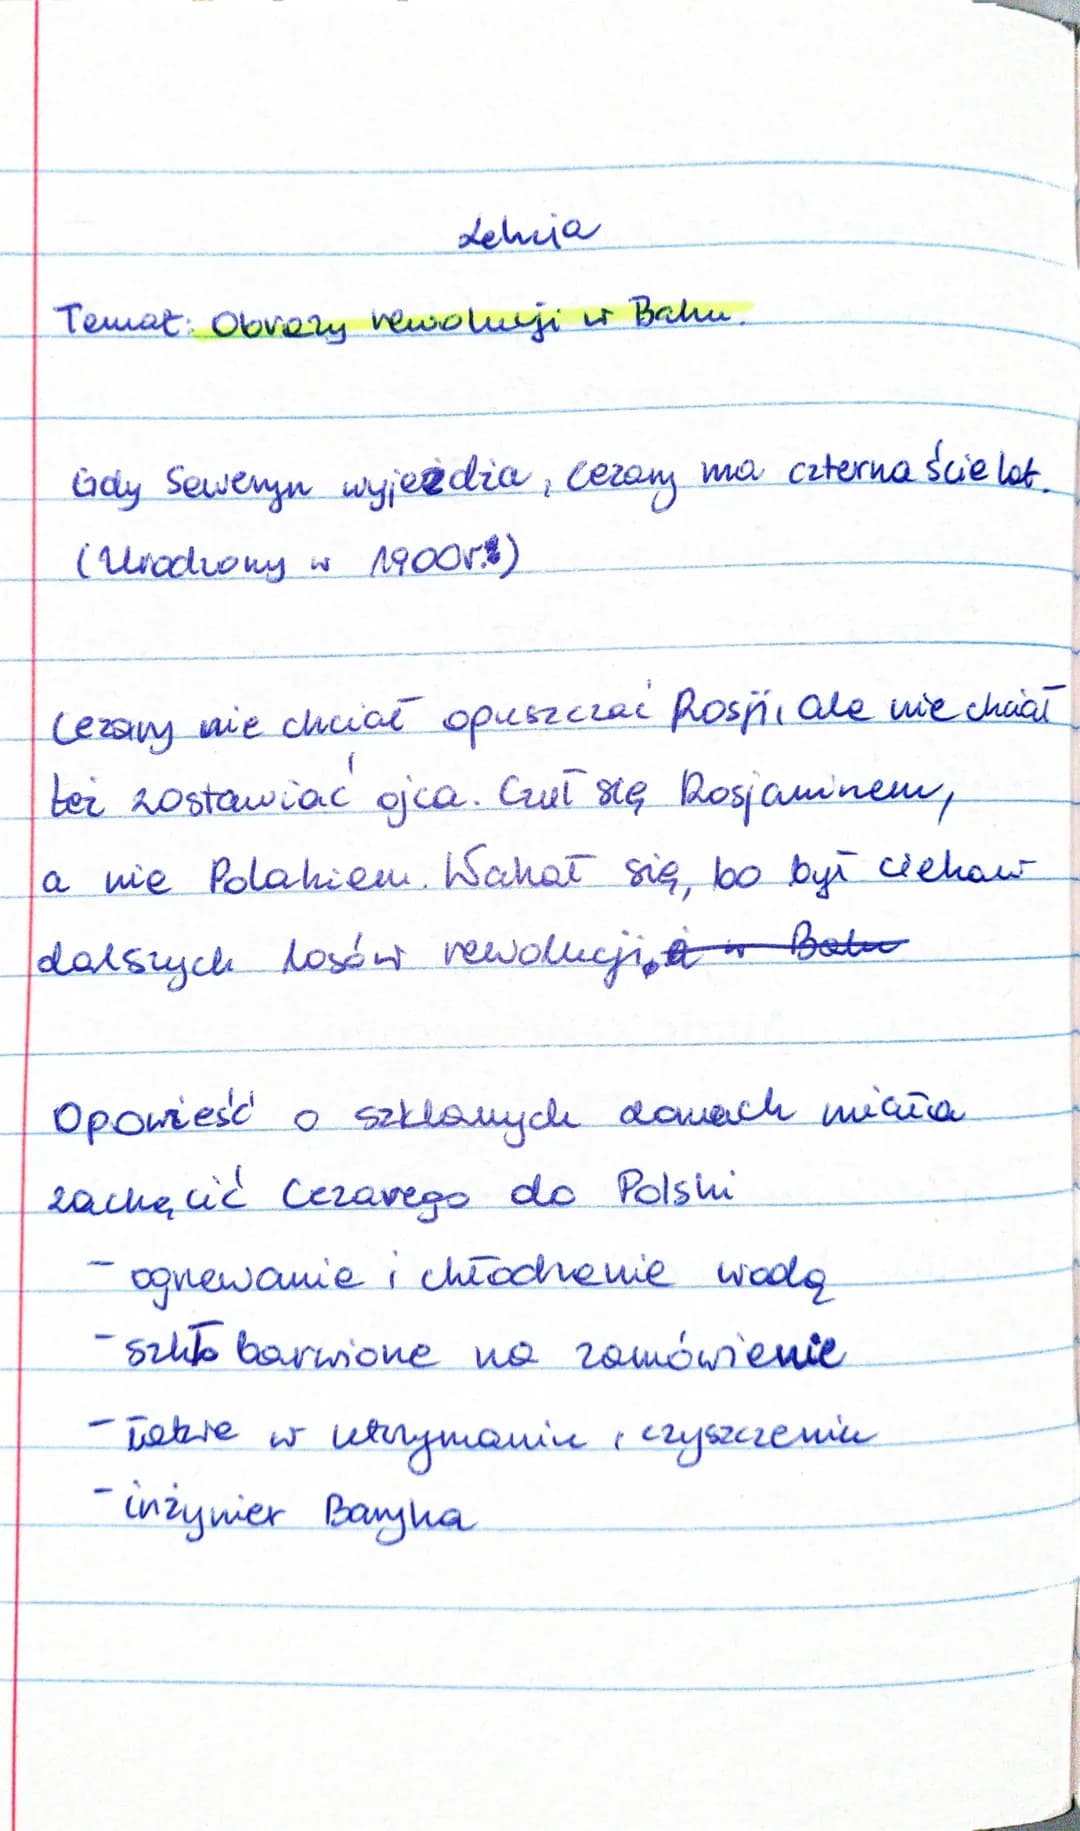 Lekcja
Temat: Obrazy rewolucji w Baku.
Gdy Seweryn wyjeżdża, Cezary ma czternaście lat.
(Urodzony w 1900r.)
Cezary nie chciał opuszczać Rosji, ale nie chciał
też zostawiać ojca. Czuł się Rosjaninem,
a nie Polakiem. Wahał się, bo był ciekaw
dalszych losów rewolucji. w Baku
Opowieść o szklanych domach miała
zachęcić Cezarego do Polski
- ogrewanie i chłodzenie wodą
- szkło barwione na zamówienie
- łatwe w utrzymaniu, czyszczeniu
- inżynier Baryka